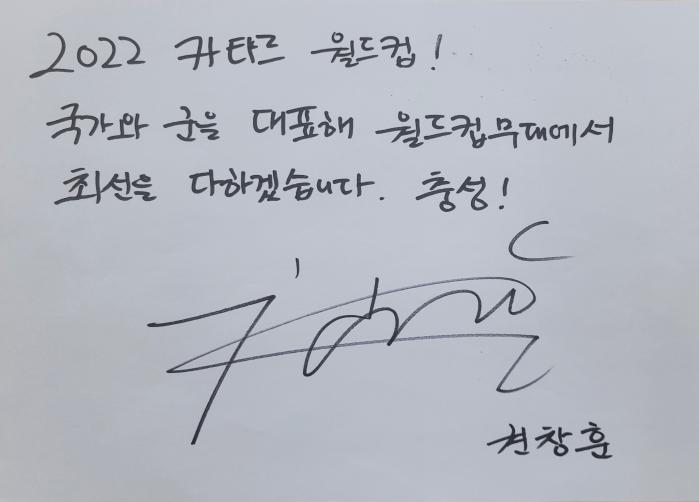 2022 카타르 월드컵!
국가와 군을 대표해 월드컵무대에서
최선을 다하겠습니다. 충성!
권창훈